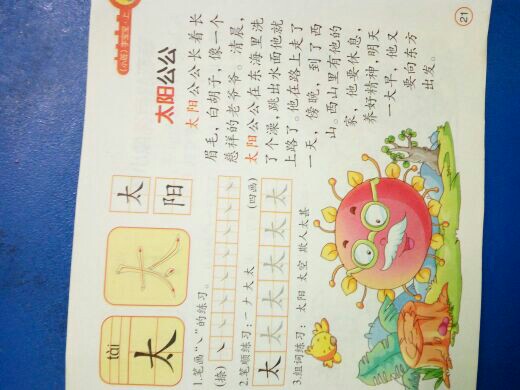 (小班)
太阳公公
太阳公公长着长
眉毛,白胡子,像一个
慈祥的老爷爷。清晨,
太阳公公在东海里洗
了个澡,跳出水面他就
上路了。他在路上走了
一天,傍晚,到了西
山。西山里有他的
家,他要休息,
养好精神,明天
一大早,他又
要向东方
出发。
tài
太 太 太
阳
1.笔画“㇏”的练习。
(捺) ㇏
2.笔顺练习:一 ナ 大 太 (四画)
太 太 太 太 太 太
3.组词练习: 太阳 太空 欺人太甚
21